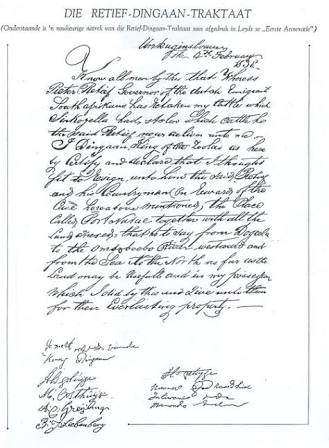 DIE RETIEF-DINGAAN-TRAKTAAT
(Onderstaande is 'n noukeurige natrek van die Retief-Dingaan-Traktaat soos afgedruk in Leyds se „Eerste Annexatie")
the 4th February
1838
Know all men by this that Whereas
Pieter Retief Governor of the dutch Emigrant
South afrikans has Retaken my Cattle which
Sinkonyella had stolen which Cattle he
the said Retief now deliver unto me
I Dingaan King of the Zoolas as here
by Certify and declare that I thought
fit to Resign unto him the said Retief
and his Countrymen on Reward of the
Case hereabove Mentioned the Place
Called Port Natal together with all the
Land annexed that is to say from Dogela
to the Omsoboebo River westward and
from the Sea to the North as far as the
Land may be Usefull and in my possession
Which I did by this and Give unto them
for their Everlasting property
King Dingaan
M Oosthuyzen
A C Greyling
B J Liebenberg